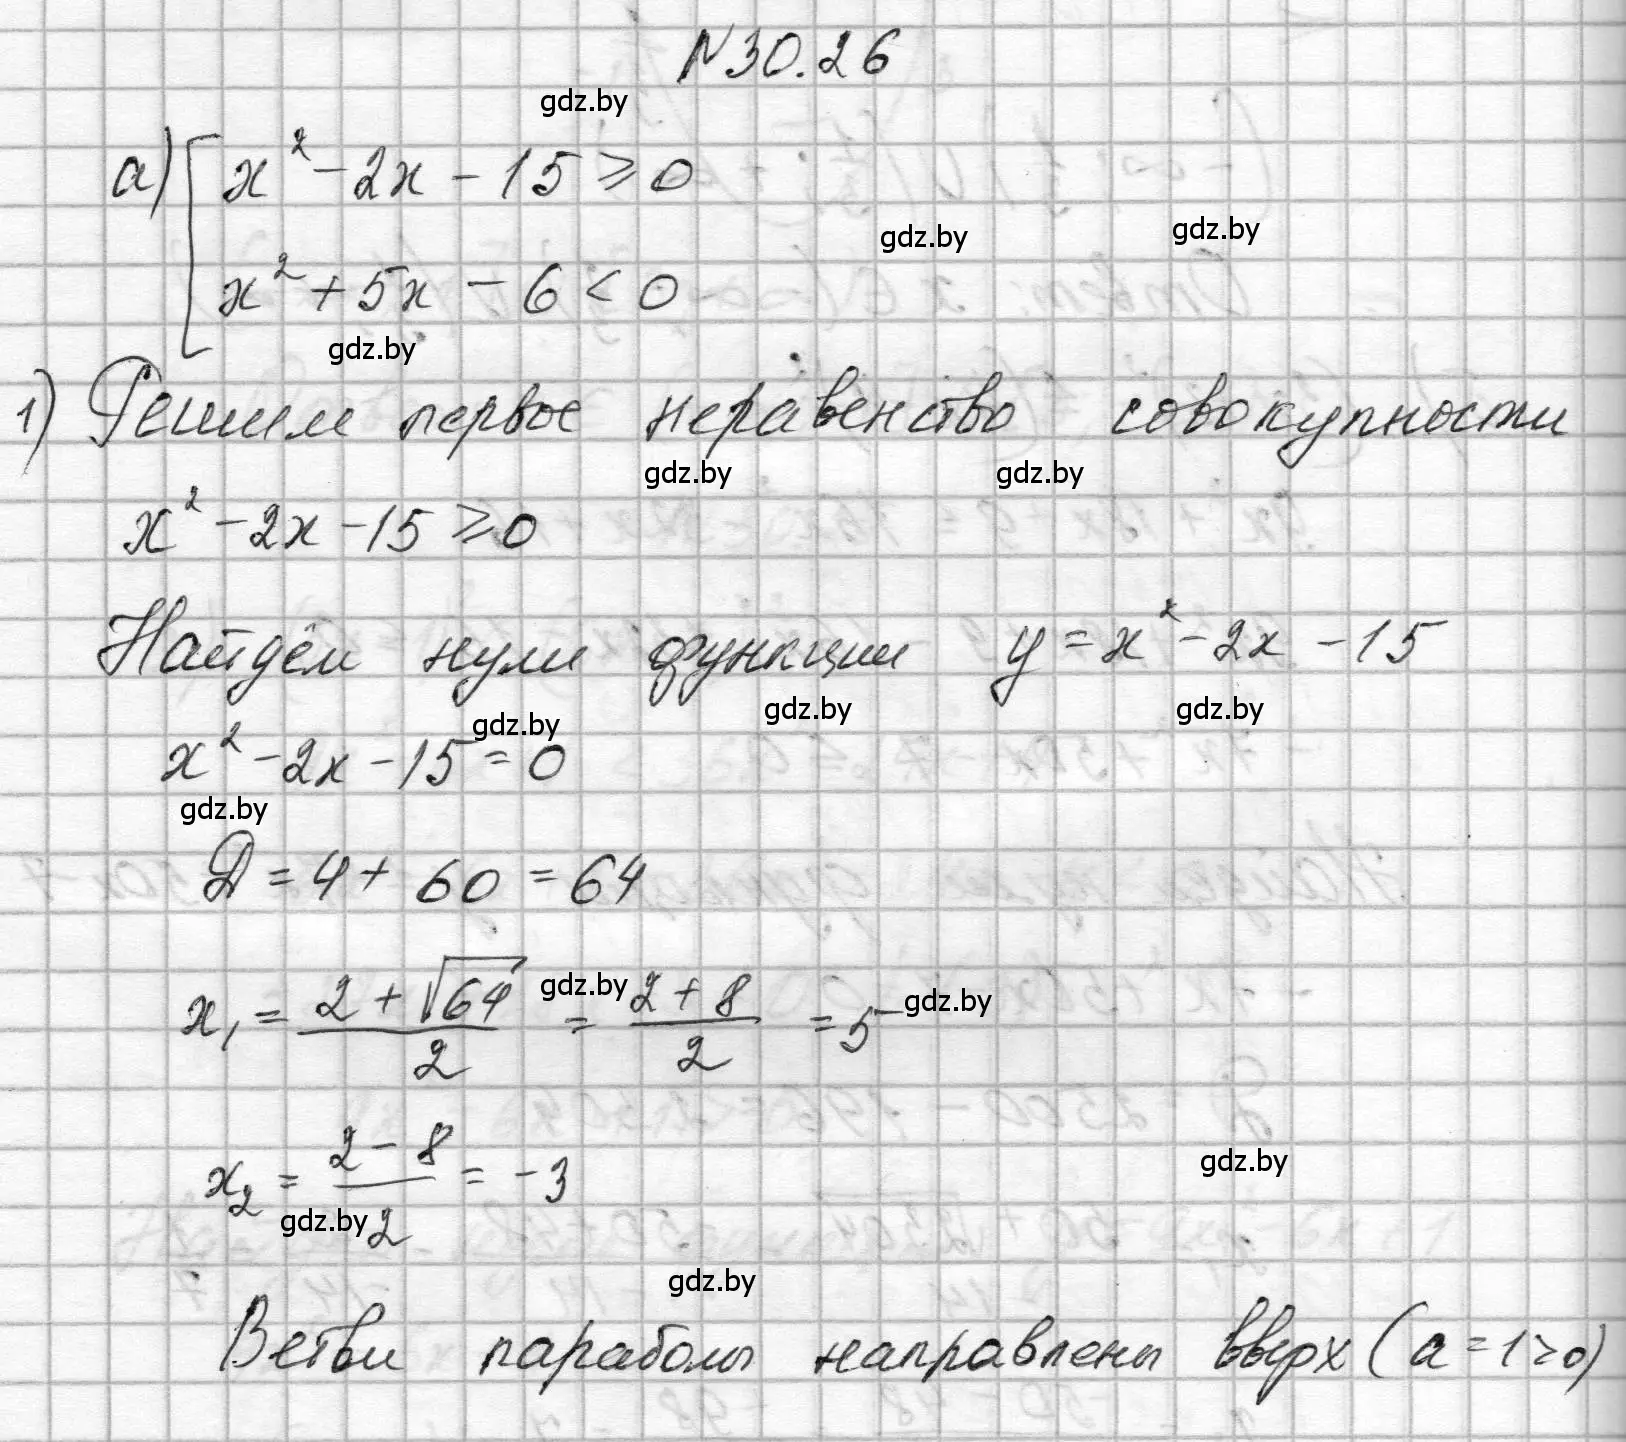 N 30.26
gdz.by
а) [ x² - 2x - 15 ≥ 0
gdz.by gdz.by
x² + 5x - 6 < 0
gdz.by
1) Решим первое неравенство совокупности
gdz.by gdz.by
x² - 2x - 15 ≥ 0
Найдём нули функции y = x² - 2x - 15
gdz.by gdz.by gdz.by
x² - 2x - 15 = 0
gdz.by
D = 4 + 60 = 64
x₁ = (2 + √64)/2 = (2 + 8)/2 = 5
gdz.by gdz.by
x₂ = (2 - 8)/2 = -3
gdz.by
gdz.by
gdz.by
Ветви параболы направлены вверх (a = 1 > 0)